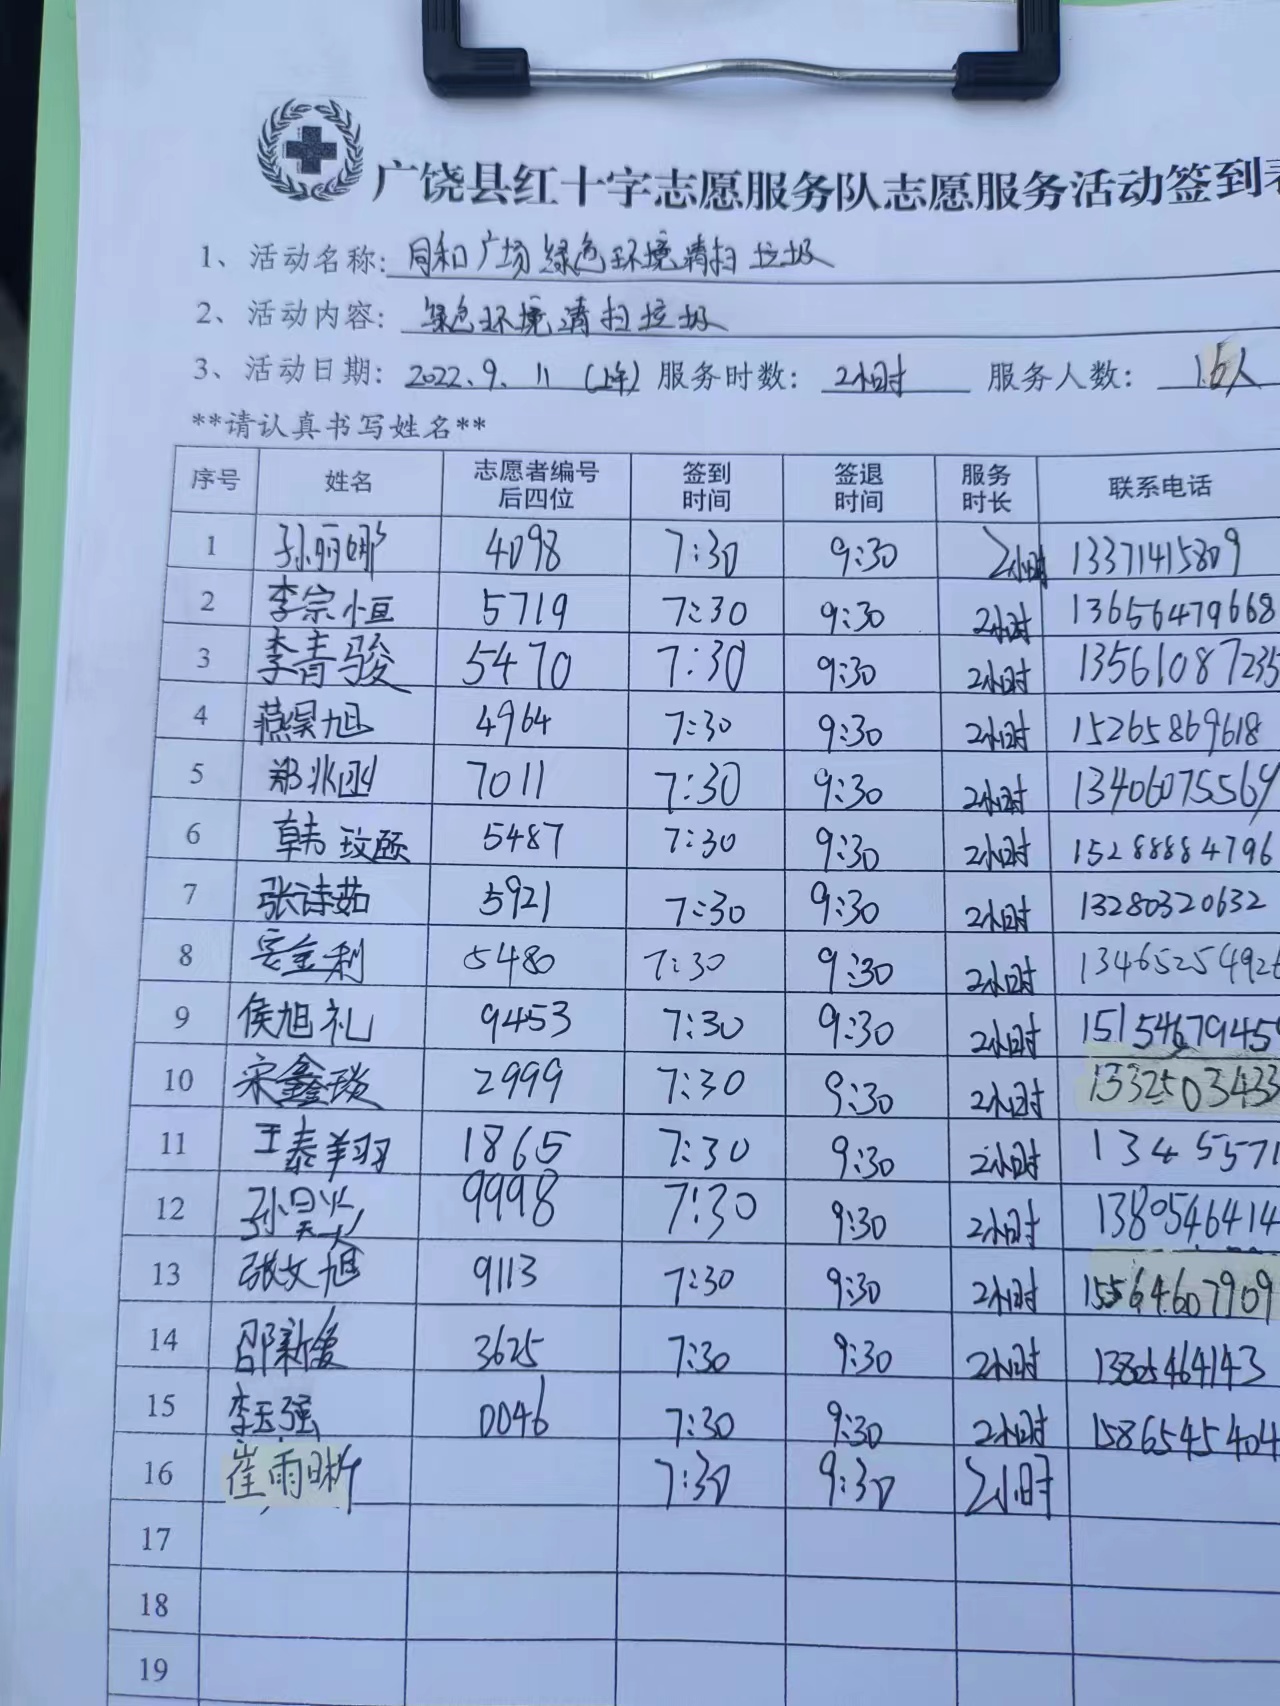 广饶县红十字志愿服务队志愿服务活动签到表
1、活动名称: 同和广场绿色环境清扫垃圾
2、活动内容: 绿色环境清扫垃圾
3、活动日期: 2022.9.11 (上午) 服务时数: 2小时 服务人数: 16人
**请认真书写姓名**
序号 姓名 志愿者编号后四位 签到时间 签退时间 服务时长 联系电话
1 孙丽娜 4098 7:30 9:30 2小时 13371415809
2 李宗恒 5719 7:30 9:30 2小时 13656479668
3 李青骏 5470 7:30 9:30 2小时 13561087235
4 燕昊旭 4964 7:30 9:30 2小时 15265869618
5 郑兆刚 7011 7:30 9:30 2小时 13406075569
6 韩玟颐 5487 7:30 9:30 2小时 15288884796
7 张诗茹 5921 7:30 9:30 2小时 13280320632
8 金利 5480 7:30 9:30 2小时 1346525492
9 侯旭礼 9453 7:30 9:30 2小时 1515467945
10 宋鑫琰 2999 7:30 9:30 2小时 1332503433
11 王泰翔 1865 7:30 9:30 2小时 1345571
12 孙昊焱 9998 7:30 9:30 2小时 1380546414
13 张文旭 9113 7:30 9:30 2小时 15564607909
14 邵新爱 3625 7:30 9:30 2小时 13805464143
15 李玉强 0046 7:30 9:30 2小时 1586545404
16 崔雨晰 7:30 9:30 2小时
17
18
19